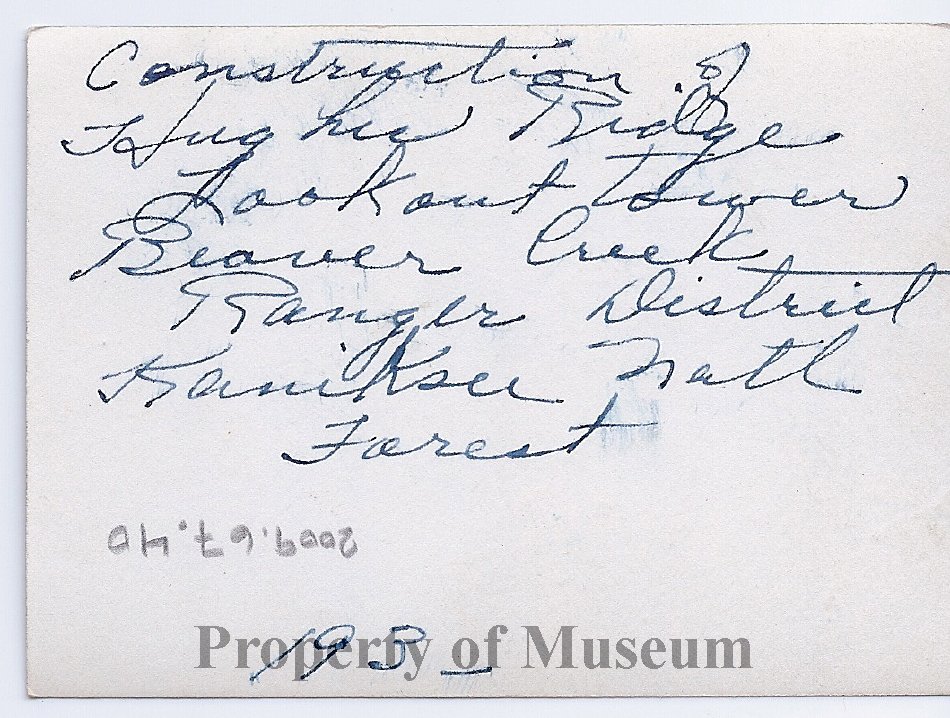 Construction of
Hughes Ridge
Lookout Tower
Beaver Creek
Ranger District
Kaniksu Natl
Forest
2009.67.40
193_
Property of Museum